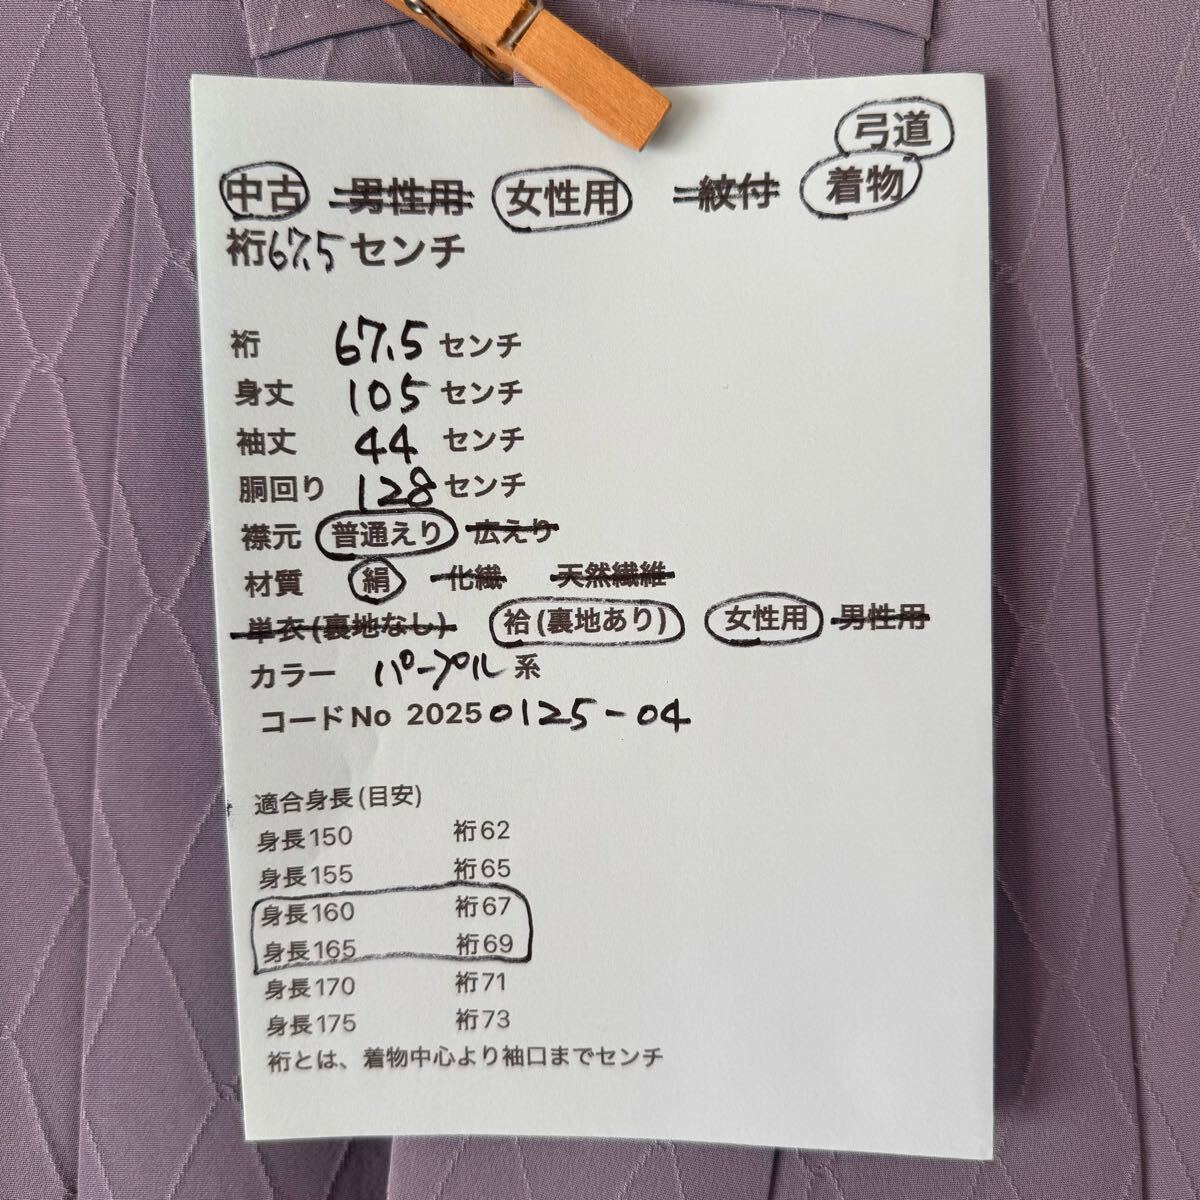 弓道
中古 男性用 女性用 紋付 着物
裄67.5センチ
裄 67.5 センチ
身丈 105 センチ
袖丈 44 センチ
胴回り 128 センチ
襟元 普通えり 広えり
材質 絹 化繊 天然繊維
単衣(裏地なし) 袷(裏地あり) 女性用 男性用
カラー パープル系
コードNo 20250125-04
適合身長(目安)
身長150 裄62
身長155 裄65
身長160 裄67
身長165 裄69
身長170 裄71
身長175 裄73
裄とは、着物中心より袖口までセンチ